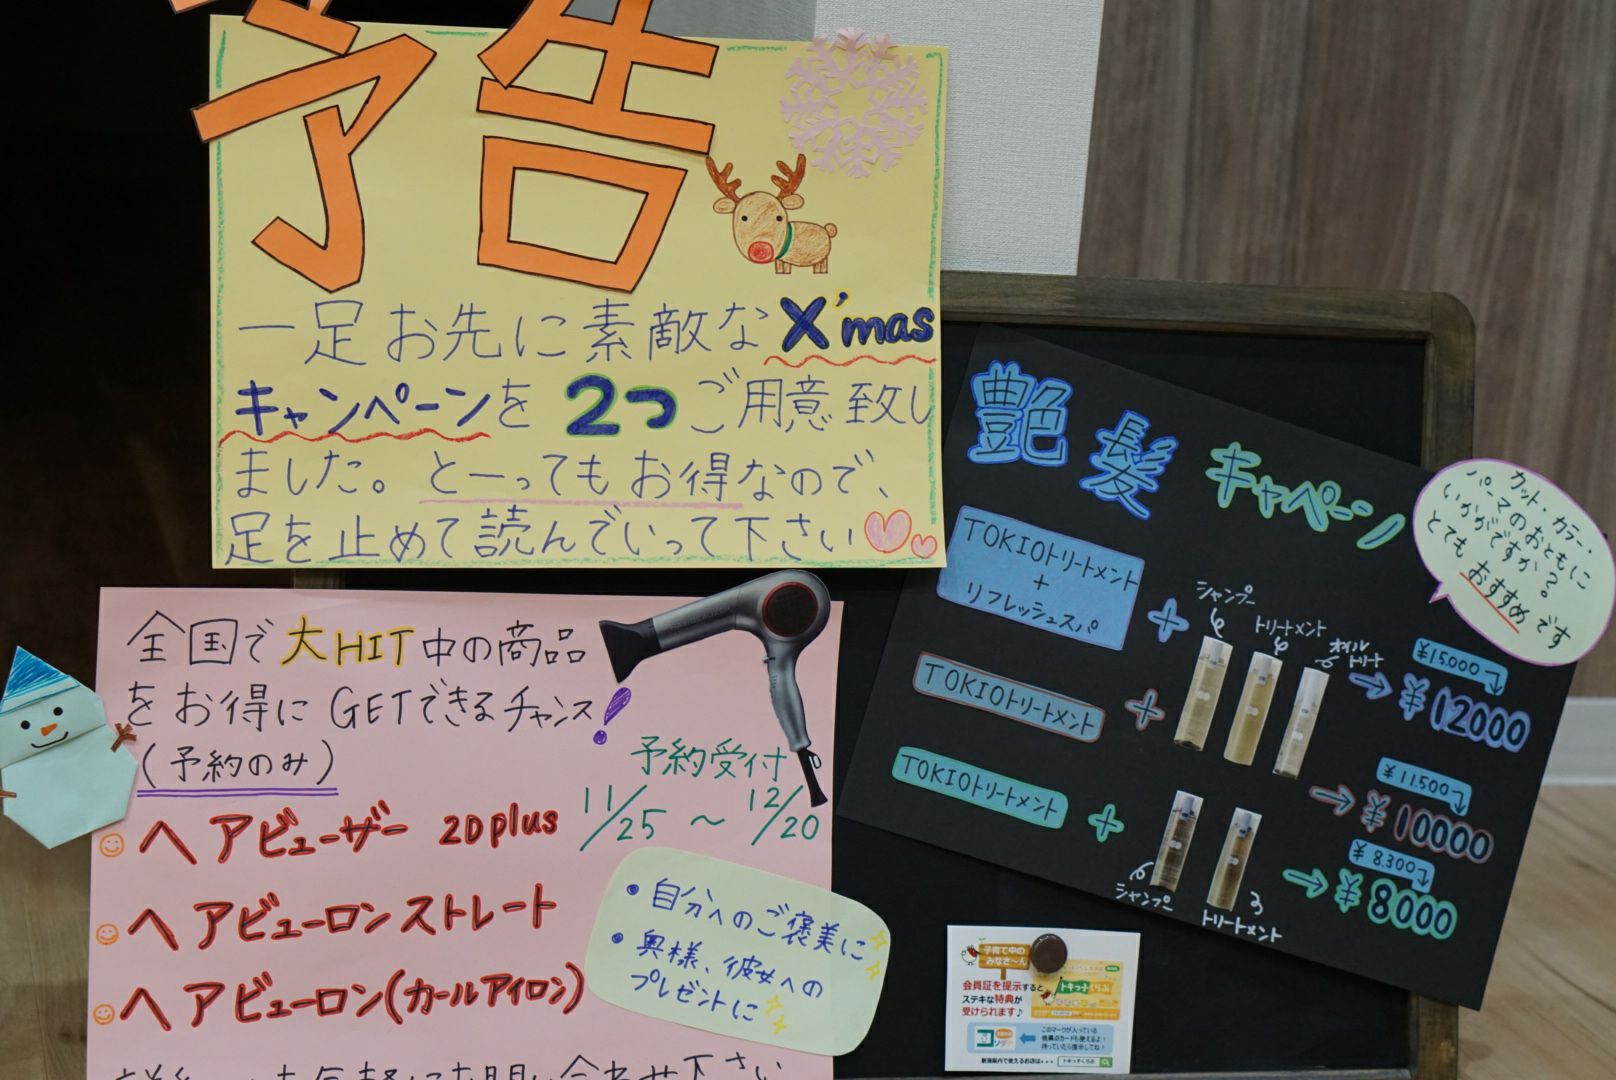 予告
一足お先に素敵なX'mas
キャンペーンを2つご用意致し
ました。とーってもお得なので、
足を止めて読んでいって下さい
全国で大HIT中の商品
をお得にGETできるチャンス!
(予約のみ)
予約受付
11/25 〜 12/20
ヘアビューザー 2Dplus
ヘアビューロンストレート
ヘアビューロン(カールアイロン)
・自分へのご褒美に
・奥様、彼女への
プレゼントに
お気軽にお問い合わせ下さい
艶髪キャペーン
カット・カラー・
パーマのおともに
いかがですか?
とてもおすすめです
TOKIOトリートメント
+
リフレッシュスパ
+
シャンプー
トリートメント
オイル
トリート
¥15000
¥12000
TOKIOトリートメント
+
¥11.500
¥10000
TOKIOトリートメント
+
シャンプー
トリートメント
¥8.300
¥8000
子育て中の
みなさ〜ん
会員証を提示すると
ステキな特典が
受けられます♪
トキっ子くらぶ
このマークが入っている
他県のカードも使えるよ!
持っていたら提示してね!
新潟県内で使えるお店は・・・
トキっ子くらぶ